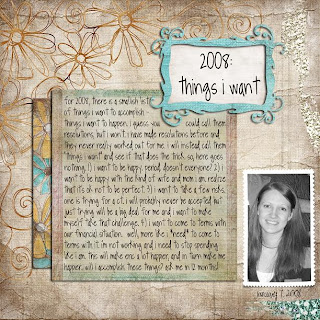 2008:
things i want
for 2008, there is a smallish list
of things i want to accomplish -
things i want to happen. i guess you could call them
resolutions, but i won't. i have made resolutions before and
they never really worked out for me. i will instead call them
"things i want" and see if that does the trick. so, here goes
nothing. 1) i want to be happy, period, doesn't everyone? 2) i
want to be happy with the kind of wife and mom i am. realize
that it's ok not to be perfect. 3) i want to take a few risks.
one is trying for a ct. i will probably never be accepted but
just trying will be a big deal for me and i want to make
myself take that challenge. 4) i want to come to terms with
our financial situation. well, more like i *need* to come to
terms with it. i'm not working and i need to stop spending
like i am. this will make eric a lot happier, and in turn make me
happier. will i accomplish these things? ask me in 12 months!
january 7, 2008